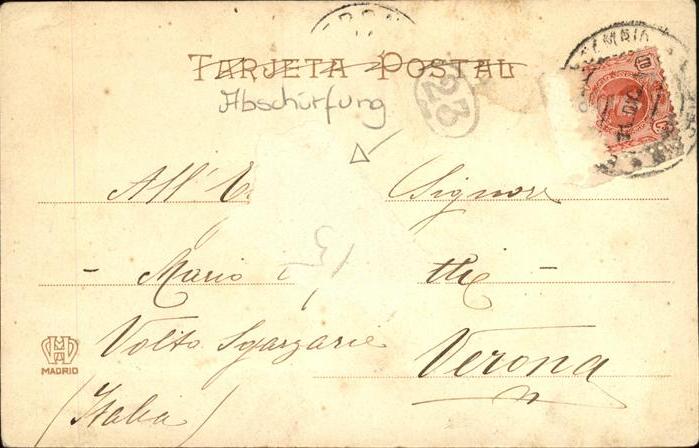 TARJETA POSTAL
Abschürfung
23
All' E Signore
Mario thi
Volto Sgarzarie
Verona
(Italia)
MADRID